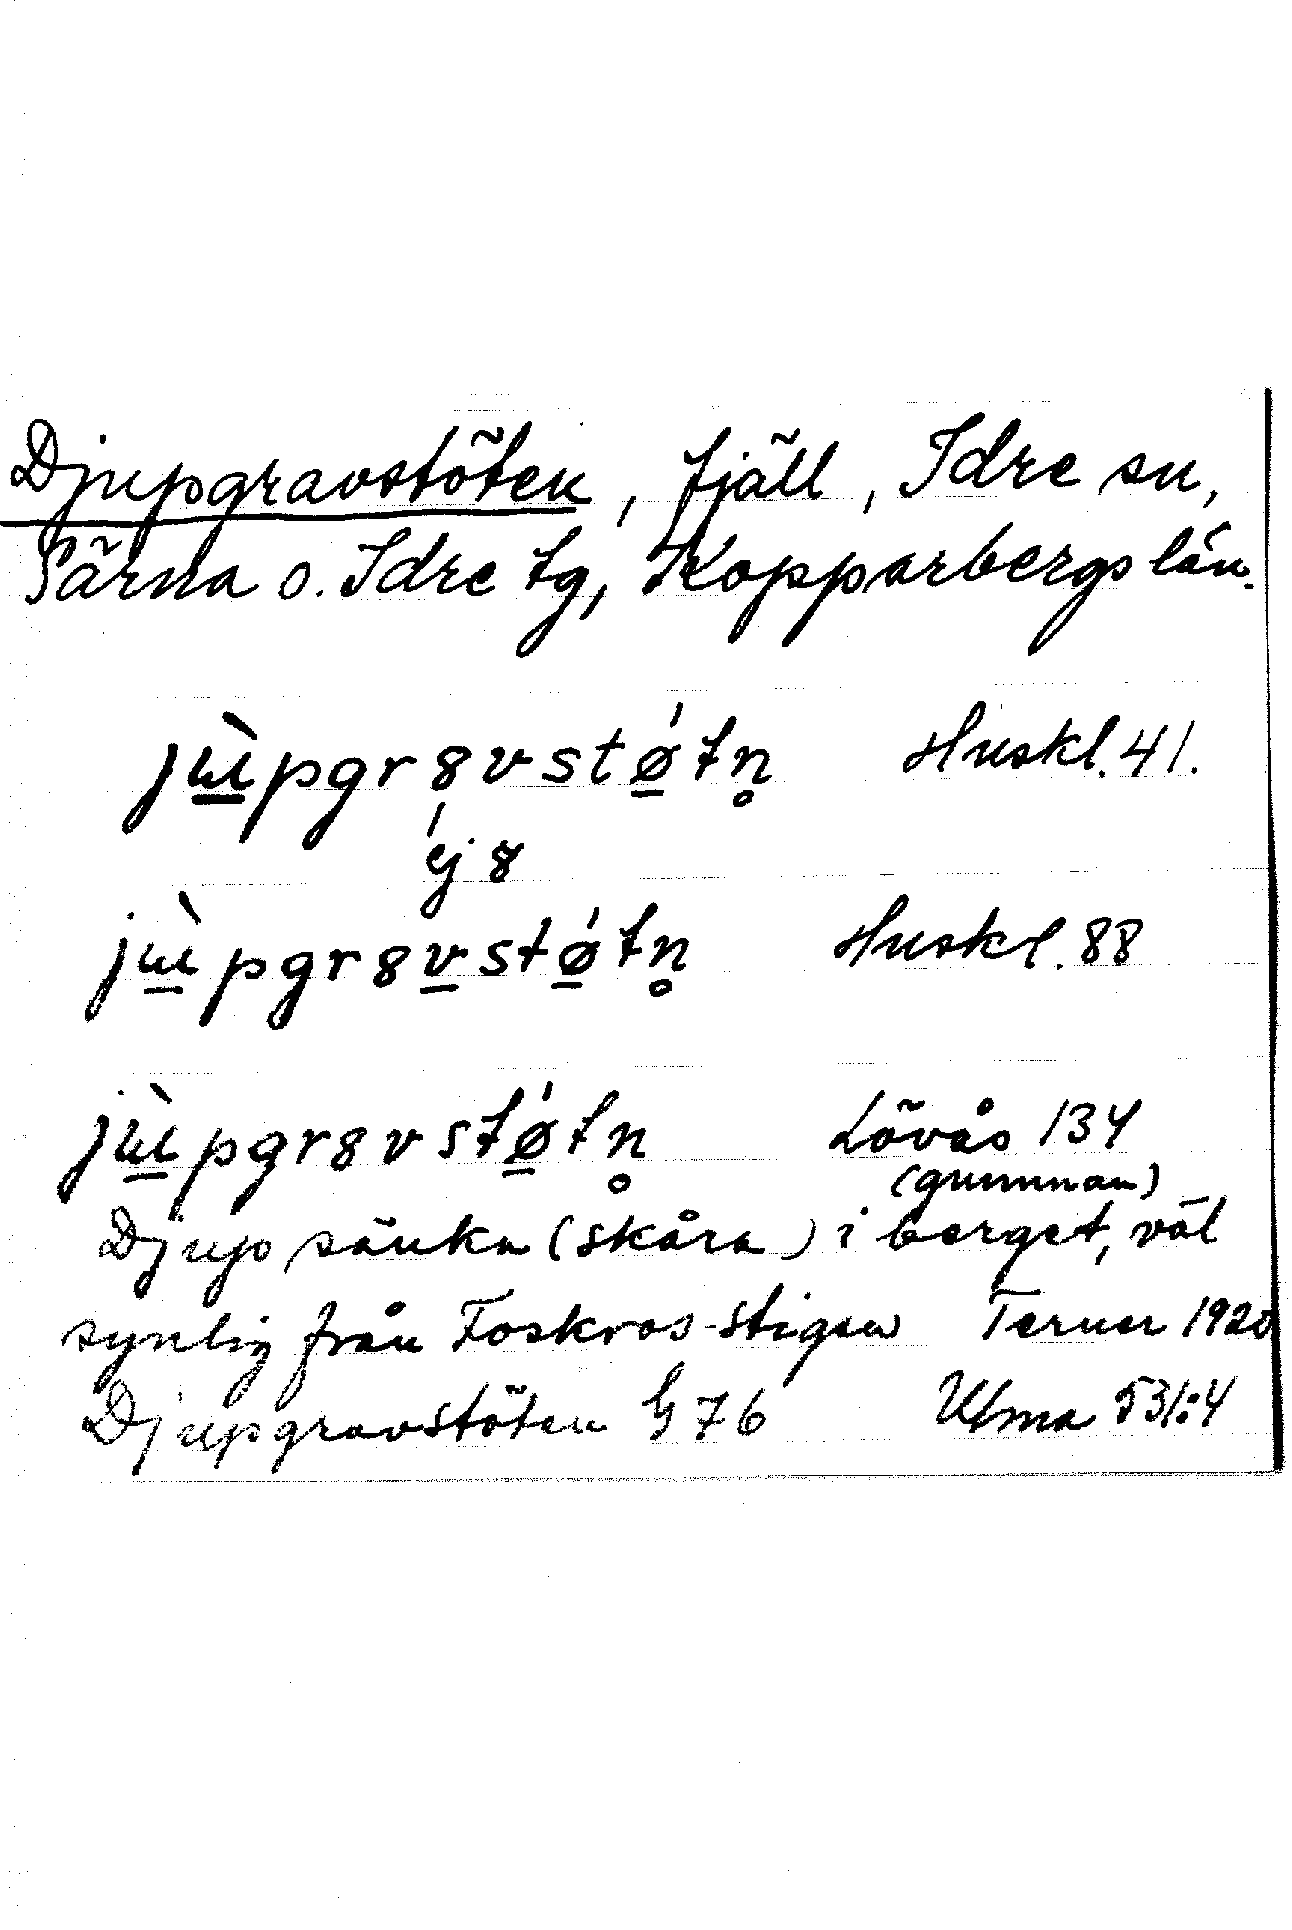 Djupgravstöten, fjäll, Idre sn,
Särna o. Idre tg, Kopparbergs län.
jɯ̲̀pgr8vstǿ̲tn̥ Huskl. 41.
ej 8
jɯ̲̀pgr8v̲stǿ̲tn̥ Huskl. 88
jɯ̲̀pgr8vstǿ̲tn̥ Lövås 134
(gumman)
Djup sänka (skåra) i berget, väl
synlig från Foskros-stigen Terner 1920
Djupgravstöten G 76 Ulma 531:4